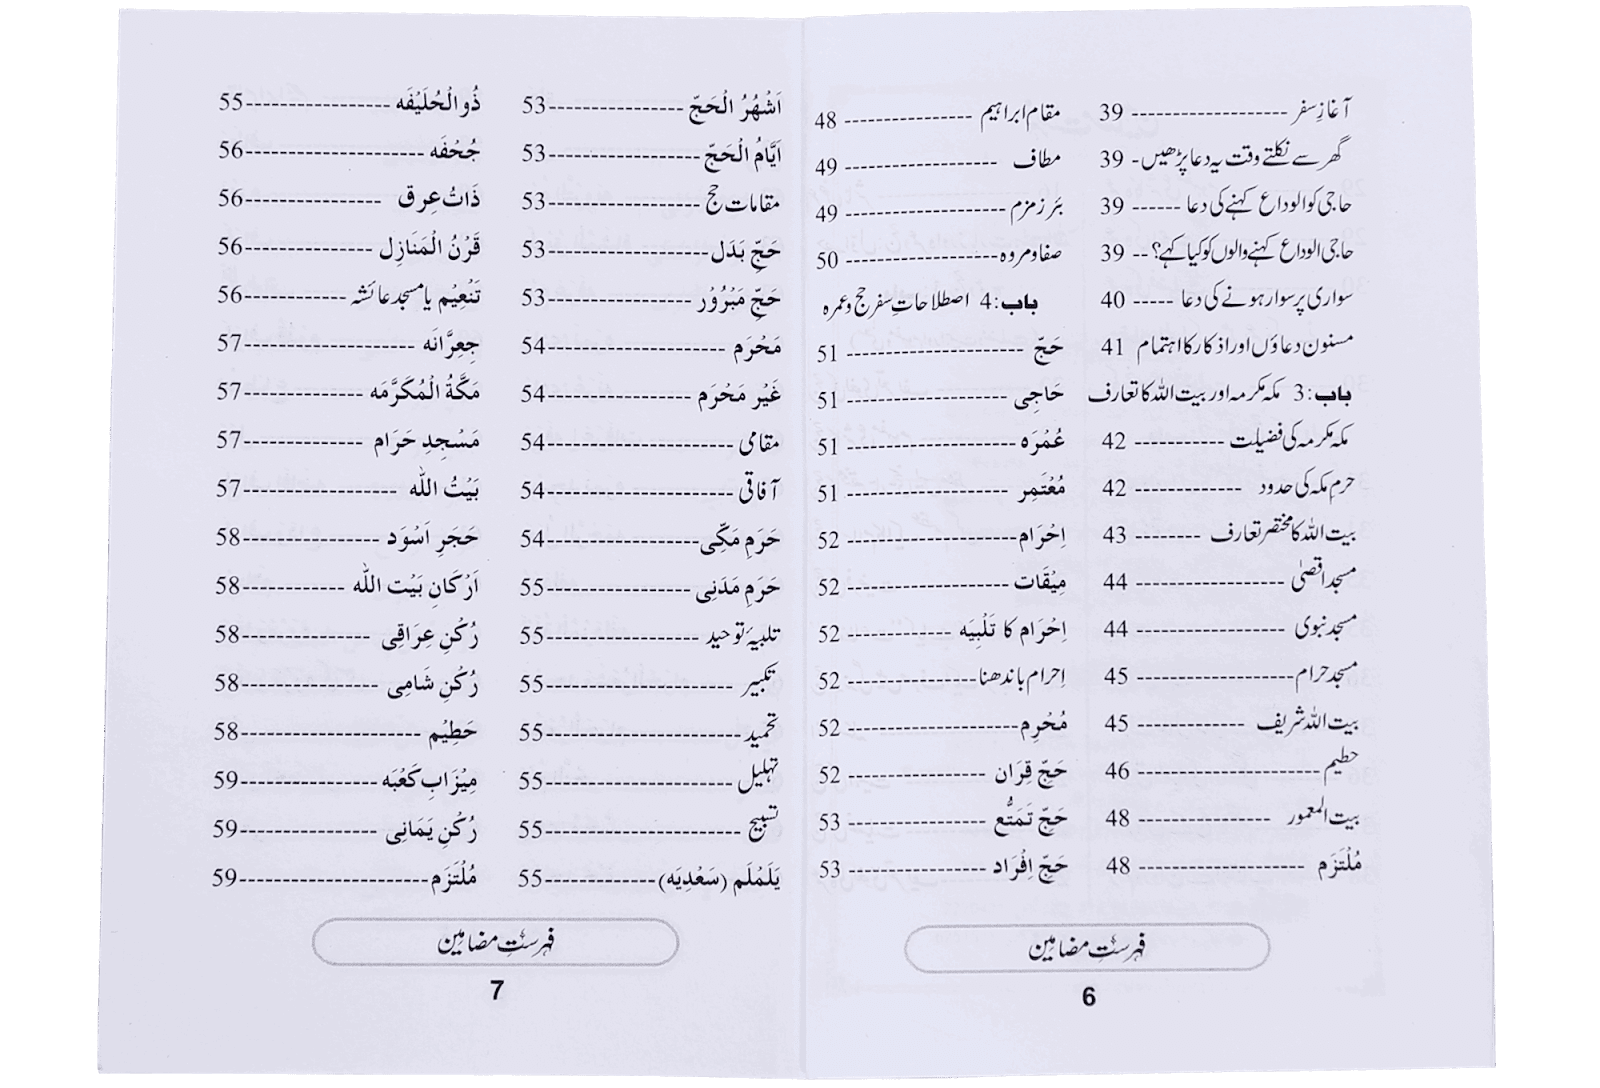 آغازِ سفر -------------------- 39
گھر سے نکلتے وقت یہ دعا پڑھیں - 39
حاجی کو الوداع کہنے کی دعا ------ 39
حاجی الوداع کہنے والوں کو کیا کہے؟ -- 39
سواری پر سوار ہونے کی دعا ----- 40
مسنون دعاؤں اور اذکار کا اہتمام 41
باب: 3 مکہ مکرمہ اور بیت اللہ کا تعارف
مکہ مکرمہ کی فضیلت ----------- 42
حرمِ مکہ کی حدود ------------- 42
بیت اللہ کا مختصر تعارف -------- 43
مسجد اقصیٰ ------------------ 44
مسجد نبوی ------------------ 44
مسجد حرام ------------------- 45
بیت اللہ شریف ------------- 45
حطیم ---------------------- 46
بیت المعمور ---------------- 48
مُلْتَزَم -------------------- 48
مقام ابراہیم ---------------- 48
مطاف ------------------- 49
بئر زمزم -------------------- 49
صفا و مروہ ------------------- 50
باب: 4 اصطلاحاتِ سفر حج و عمرہ
حَجّ ---------------------- 51
حَاجِی -------------------- 51
عُمْرَہ --------------------- 51
مُعْتَمِر -------------------- 51
اِحْرَام --------------------- 52
مِیْقَات -------------------- 52
اِحْرَام کا تَلْبِیَہ ------------- 52
اِحرام باندھنا ---------------- 52
مُحْرِم --------------------- 52
حَجِّ قِرَان ----------------- 52
حَجِّ تَمَتُّع ----------------- 53
حَجِّ اِفْرَاد ----------------- 53
فہرستِ مضامین
6
اَشْهُرُ الْحَجّ ----------------- 53
اَیَّامُ الْحَجّ ------------------- 53
مقامات حج ------------------- 53
حَجِّ بَدَل -------------------- 53
حَجِّ مَبْرُوْر ------------------ 53
مَحْرَم ---------------------- 54
غَیْر مَحْرَم ------------------ 54
مقامی ----------------------- 54
آفاقی ----------------------- 54
حَرَمِ مَکِّی ------------------- 54
حَرَمِ مَدَنِی ------------------ 55
تلبیہَ توحید ------------------- 55
تکبیر ----------------------- 55
تحمید ------------------------ 55
تہلیل ----------------------- 55
تسبیح ------------------------ 55
یَلَمْلَم (سَعْدِیَه) -------------- 55
ذُو الْحُلَیْفَه ------------------ 55
جُحْفَه ---------------------- 56
ذَاتُ عِرق ----------------- 56
قَرْنُ الْمَنَازِل ---------------- 56
تَنْعِیْم یا مسجد عائشہ ------------ 56
جِعِرَّانَه --------------------- 57
مَكَّةُ الْمُكَرَّمَه --------------- 57
مَسْجِدِ حَرَام ---------------- 57
بَیْتُ اللّٰه ------------------- 57
حَجَرِ اَسْوَد ------------------ 58
اَرْکَانِ بَیْت اللّٰه ------------- 58
رُکْنِ عِرَاقِی ---------------- 58
رُکْنِ شَامِی ----------------- 58
حَطِیْم ---------------------- 58
مِیْزَابِ کَعْبَه ---------------- 59
رُکْنِ یَمَانِی ----------------- 59
مُلْتَزَم ----------------------- 59
فہرستِ مضامین
7